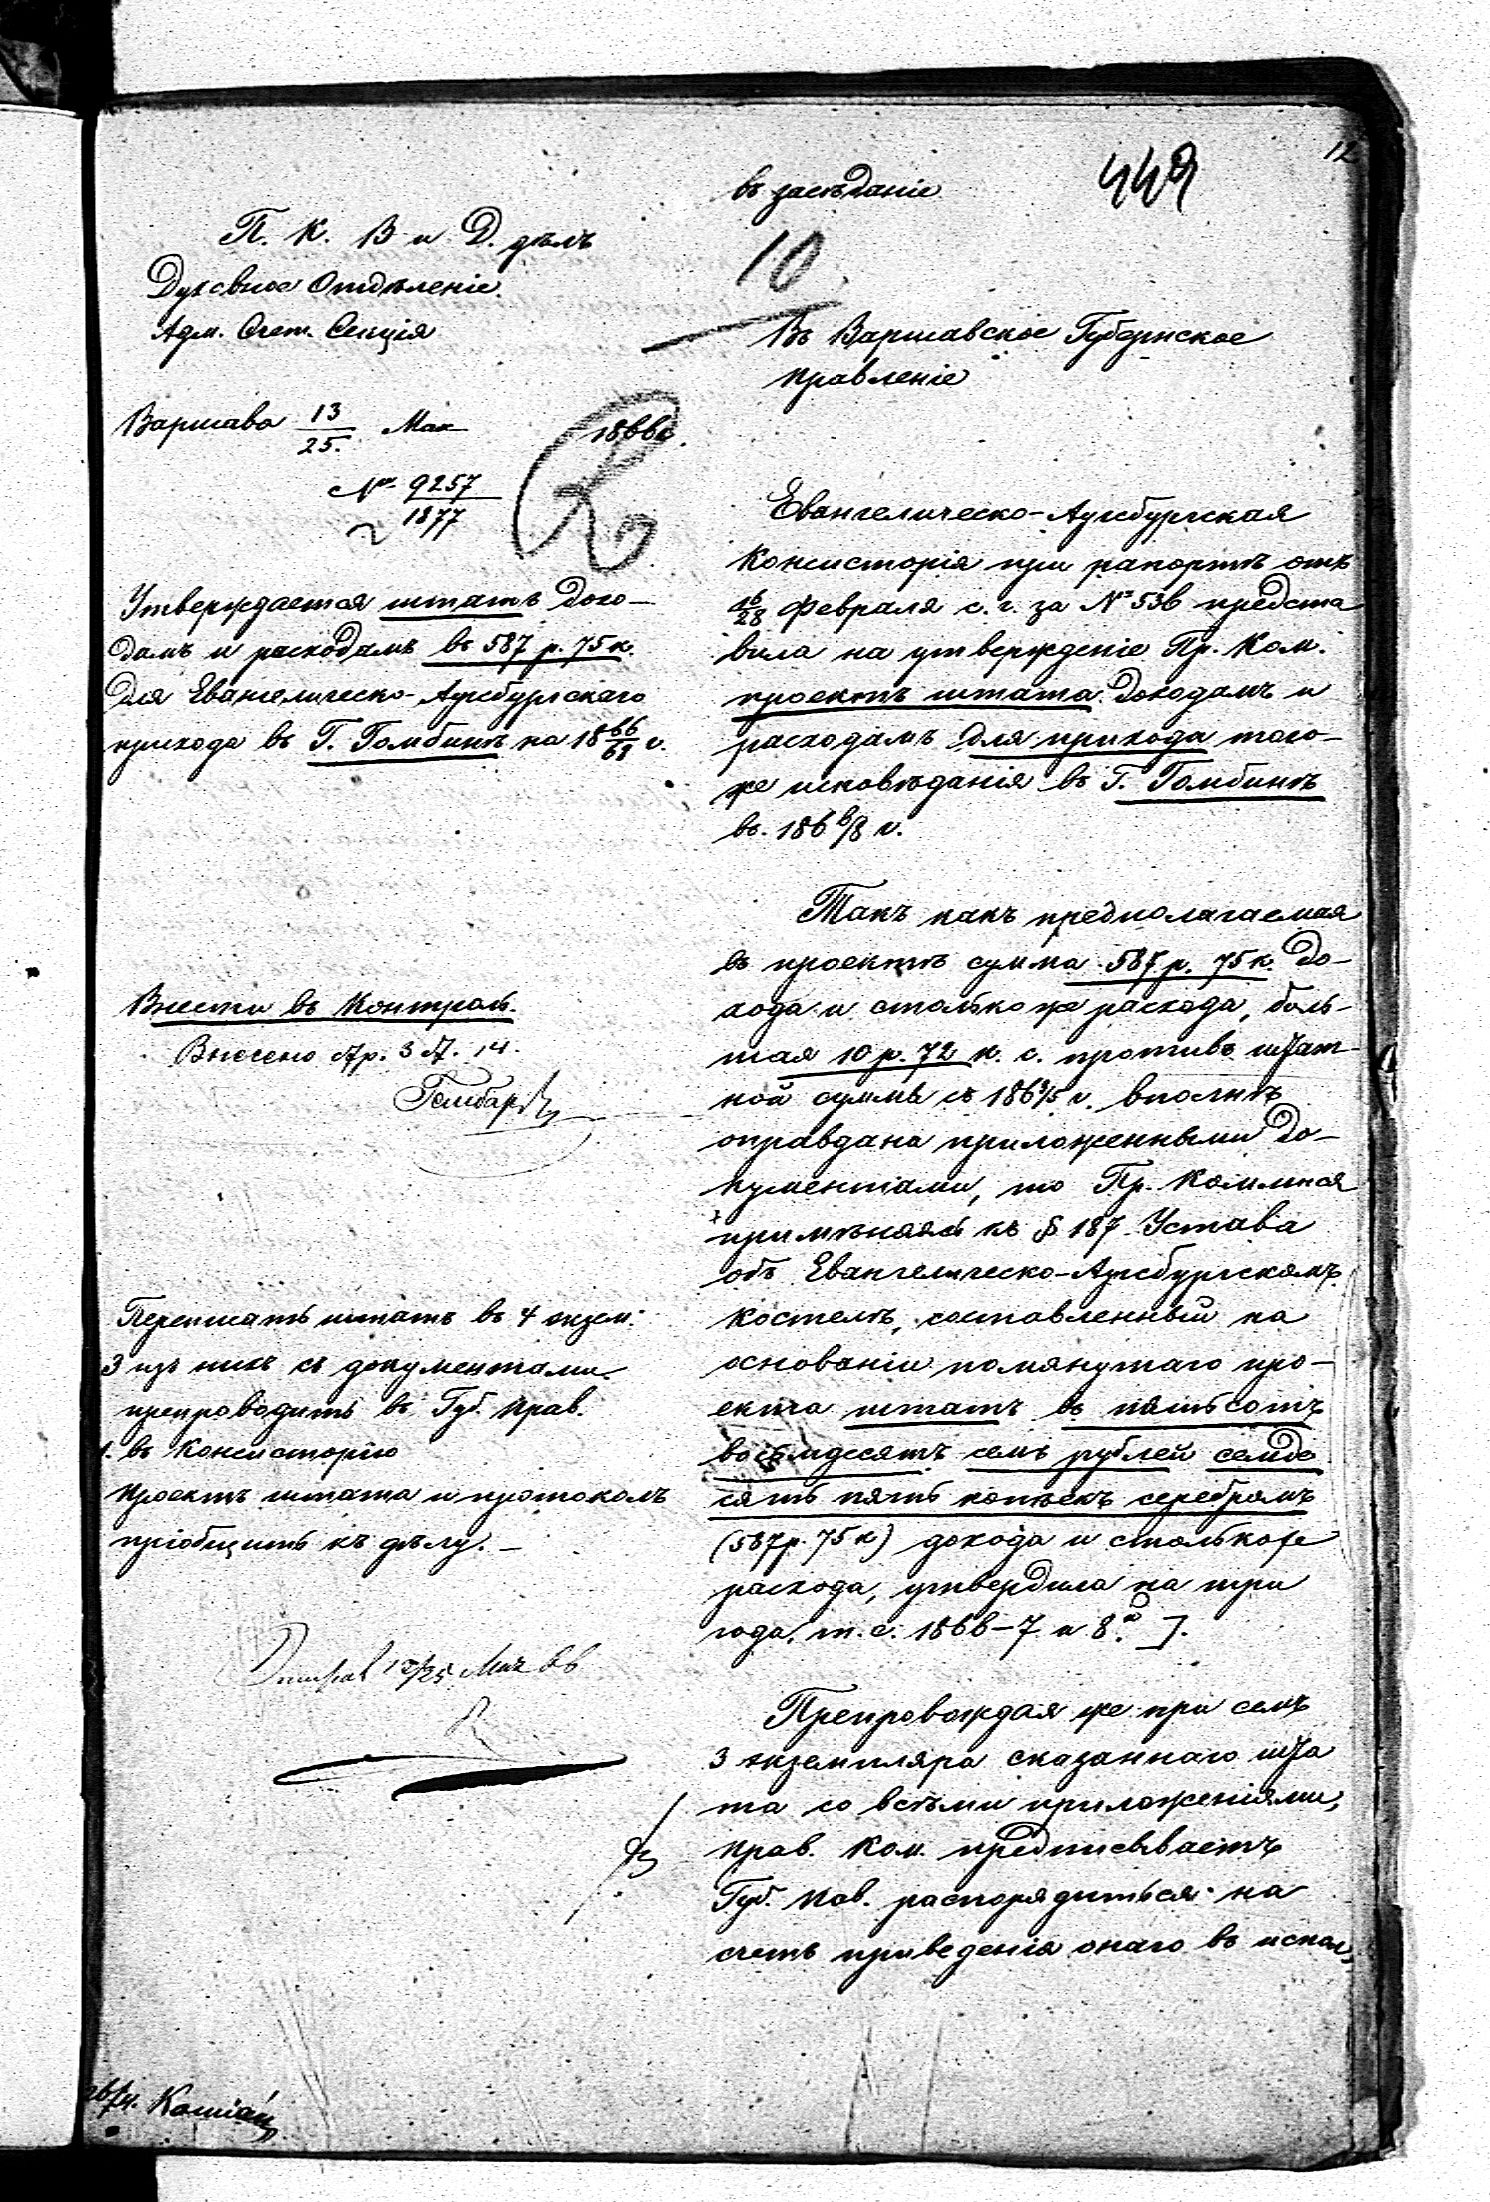 12
449
въ засѣданіе
10
П. К. В и Д. дѣлъ
Духовное Отдѣленіе.
Адм. Счет. Секція
Варшава 13/25. Мая 1866.
№ 9257/1877
Утверждается штатъ дохо-
дамъ и расходамъ въ 587 р. 75 к.
для Евангелическо-Аугсбургскаго
прихода въ Г. Гомбинѣ на 18 66/68 г.
Внести въ Контроль.
Внесено стр. 3 № 14.
Переписать штатъ въ 4 экзем.
3 изъ нихъ съ документами
препроводить въ Губ. Прав.
1. въ Консисторію
Проектъ штата и протоколъ
пріобщить къ дѣлу. –
13/25 Мая 66
Въ Варшавское Губернское
Правленіе
Евангелическо-Аугсбургская
Консисторія при рапортѣ отъ
16/28 Февраля с. г. за № 536 предста
вила на утвержденіе Пр. Ком.
проектъ штата доходамъ и
расходамъ для прихода того-
же исповѣданія въ Г. Гомбинѣ
въ 186 6/8 г.
Такъ какъ предполагаемая
въ проектѣ сумма 587 р. 75 к. до-
хода и столько же расхода, боль-
шая 10 р. 72 к. с. противъ штат-
ной суммы съ 186 3/5 г. вполнѣ
оправдана приложенными до-
кументами, то Пр. Коммисія
примѣняясь къ § 187 Устава
объ Евангелическо-Аугсбургскомъ
костелѣ, составленный на
основаніи помянутаго про-
екта штатъ въ пятьсотъ
восемдесятъ семь рублей семде
сятъ пять копѣекъ серебромъ
(587 р. 75 к) дохода и столькоже
расхода, утвердила на три
года, т. е. 1866–7 и 8.
Препровождая же при семъ
3 экземпляра сказаннаго шта
та со всѣми приложеніями,
Прав. Ком. предписываетъ
Губ. Пав. распорядиться на
счетъ приведенія онаго въ испол.